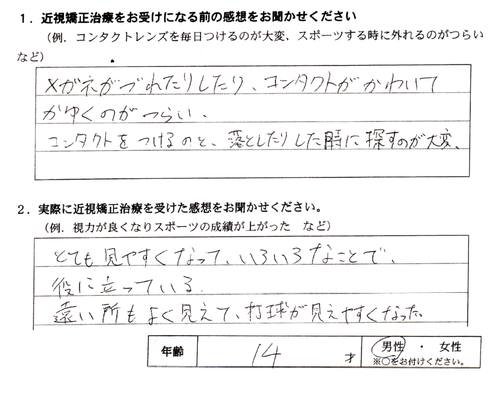 1．近視矯正治療をお受けになる前の感想をお聞かせください
（例．コンタクトレンズを毎日つけるのが大変、スポーツする時に外れるのがつらい
など）
メガネがづれたりしたり、コンタクトがかわいて
かゆくのがつらい、
コンタクトをつけるのと、落としたりした時に探すのが大変、
2．実際に近視矯正治療を受けた感想をお聞かせください。
（例．視力が良くなりスポーツの成績が上がった　など）
とても見やすくなって、いろいろなことで、
役に立っている
遠い所もよく見えて、打球が見えやすくなった。
年齢　14　才　男性　・　女性
※○をお付けください。